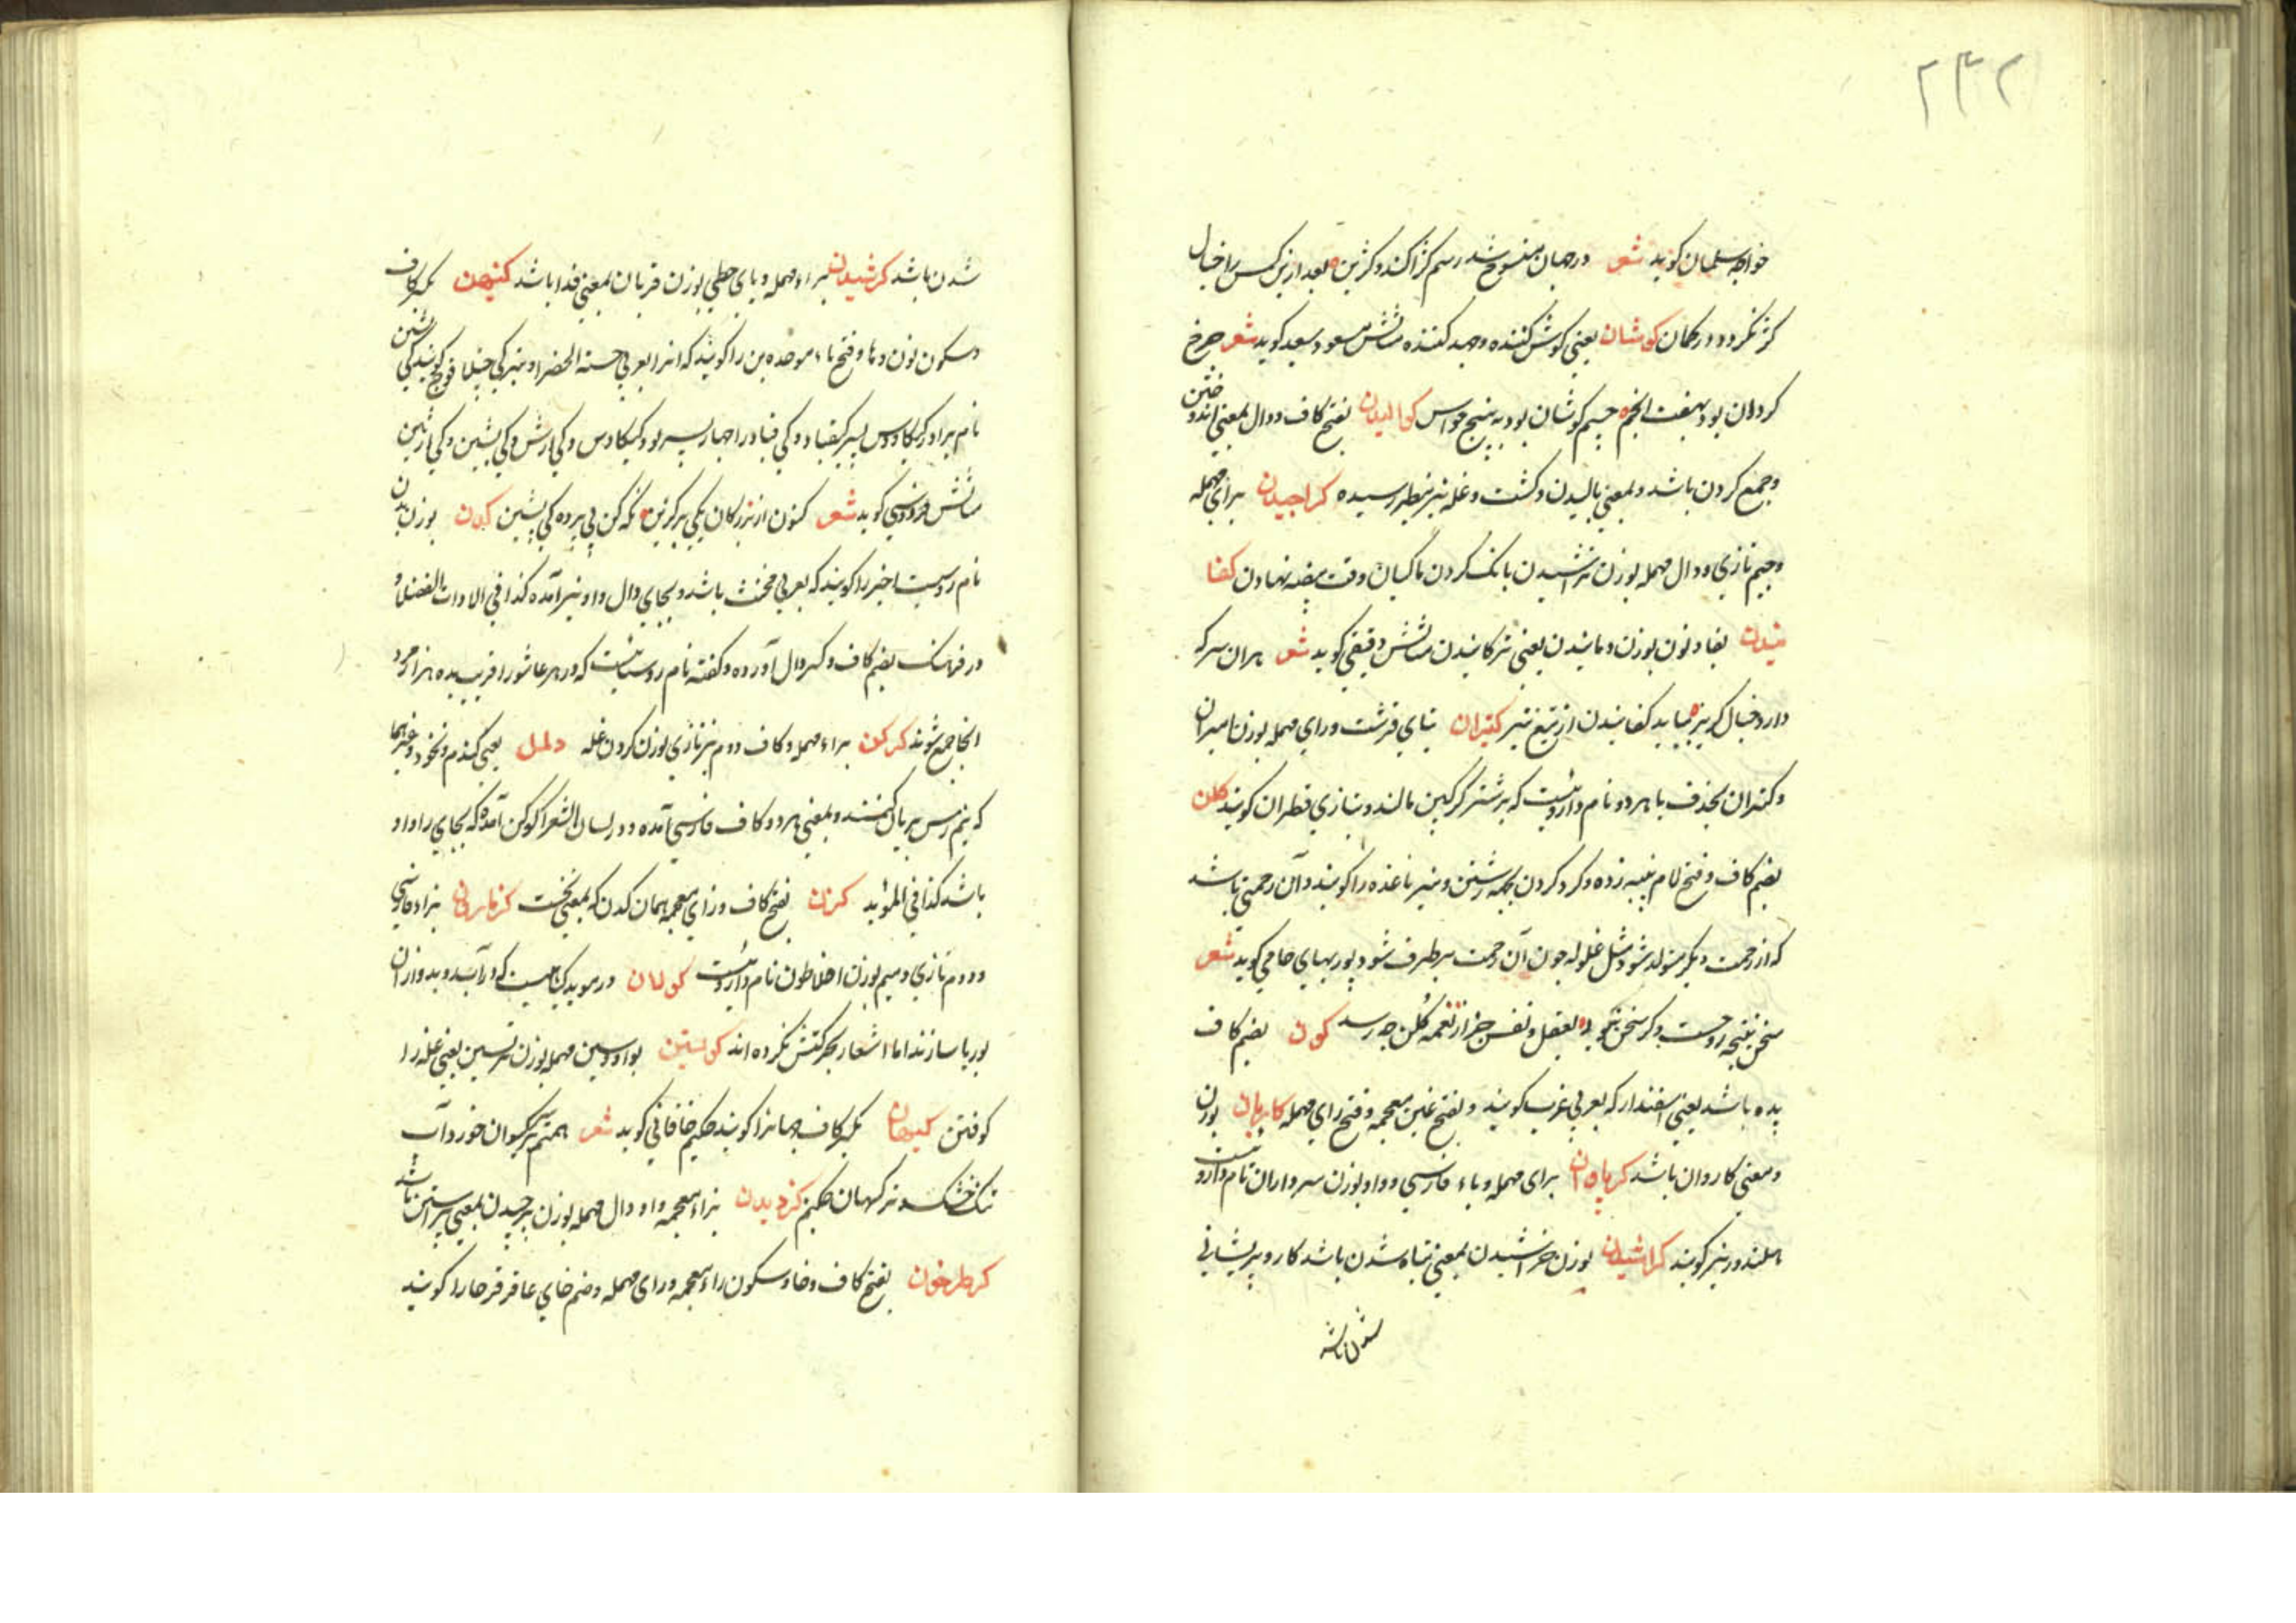 ۲۴۲
خواجه سلمان کوید شعر در جهان منسوخ شد رسم کژاکند و کژین بعد ازین کس را خیال
کژ نکردد در کمان کوشان یعنی کوشش کننده و جهد کننده مثالش مسعود سعید کوید شعر چرخ
کردان بود بهفت انجم جسم کوشان بود به پنج حواس کوالیدن بفتح کاف و دال بمعنی اندوختن
و جمع کردن باشد و بمعنی بالیدن و کشت و غله نیز بنظر رسیده کراجیدن برای مهمله
و جیم تازی و دال مهمله بوزن تراشیدن بانک کردن ماکیان وقت بیضه نهادن کفا
نیدن بفا و نون بوزن دمانیدن یعنی ترکانیدن مثالش دقیقی کوید شعر هران سر که
دارد خیال کریز بباید کفانیدن از تیغ تیز کتیران بتای قرشت و رای مهمله بوزن امیران
و کتران بحذف یا هر دو نام داروئیست که بر شتر کرکین مالند و بتازی قطران کویند کلن
بضم کاف و فتح لام پنبه زده و کرد کردن بجهه رشتن و نیز ناغنده را کویند و آن زحمتی باشد
که از زحمت دیکر متولد شود مثل غلوله چون آن زحمت برطرف شود پوربهای جامی کوید شعر
سخن نتیجه روحست و کر سخن نبود بعقل و نفس جز از نغمه کلن چه رسد کون بضم کاف
پده باشد یعنی اسفندار که بعربی غرب کویند و بفتح غین معجمه و فتح رای مهمله کاربان بوزن
و معنی کاروان باشد کرپاوان برای مهمله و باء فارسی و واو بوزن سرداران نام داروئیست
بلندور نیز کویند کراشیدن بوزن خراشیدن بمعنی تباه شدن باشد کار و پریشانی
شدن باشد
شدن باشد کرشیدن براء مهمله و یای حطی بوزن قربان بمعنی فدا باشد کنبهن بکسر کاف
و سکون نون و ها و فتح باء موحده بن را کویند که انرا بعربی حبة الخضرا و نیز کی خیلا قوچ کویند کی پشین
نام برادر کیکاوس پسر کیقباد و کی قباد را چهار پسر بود کیکاوس و کی ارش و کی پشین و کی ارمین
مثالش فردوسی کوید شعر کنون از بزرکان یکی برکزین نکه کن پی پرده کی پشین کدن بوزن بدن
نام رودیست اخیر را کویند که بعربی مخنث باشد و بجای دال واو نیز آمده کذا فی الادات الفضلا و
در فرهنک بضم کاف و کسر دال آورده و کفته نام روستائیست که در هر عاشورا قریب بده هزار مرد
انجا جمع شوند کرکن براء مهمله و کاف دوم نیز تازی بوزن کردن غله دلمل یعنی کندم و نخود و غیرهما
که نیم رس بریان کنند و بمعنی هر دو کاف فارسی آمده و در لسان الشعرا کوکن آمده که بجای را واو
باشد کذا فی المؤید کزن بفتح کاف و زای معجمه همان کدن که بمعنی نخست کزمازن بزاء فارسی
و دوم تازی و میم بوزن افلاطون نام داروئیست کولان در موید کیاهیست که در آب روید و ازان
بوریا سازند اما اشعار بحرکتش نکرده اند کوستن بواو و سین مهمله بوزن نرسین یعنی غله را
کوفتن کیهان بکسر کاف جهانرا کویند حکیم خاقانی کوید شعر همتم بر کیوان خورد آب
ننک خشک و تر کیهان چکنم کزدیدن بزاء معجمه و واو و دال مهمله بوزن برچیدن بمعنی پیراستن باشد
کزطرخون بفتح کاف و خا و سکون زاء معجمه و رای مهمله و ضم خای عاقرقرحا را کویند